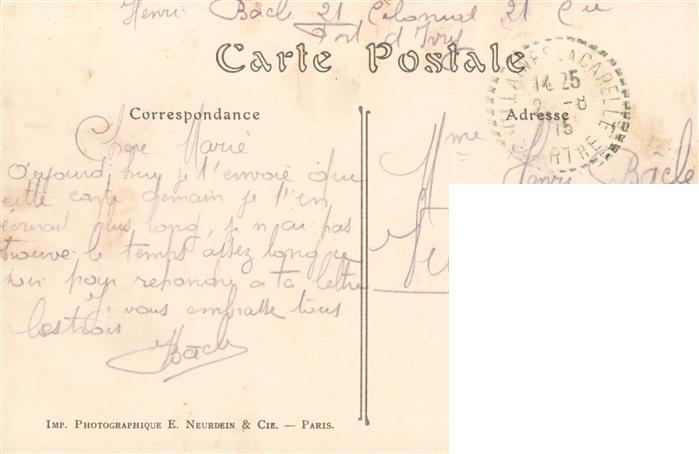 Henri Bacle 21 Colonial 21 Cie
Fort d'Ivry
Carte Postale
14 25
2 -8
15
SARTHE
Correspondance
Adresse
Chere Marie
Aujourd huy je t'envoie que
cette carte demain je t'en
écrirait plus long, j n ai pas
trouve le temps assez long ce
soir pour repondre a ta lettre
Je vous embrasse tous
les trois
Bacle
Mme Henri Bacle
IMP. PHOTOGRAPHIQUE E. NEURDEIN & CIE. — PARIS.